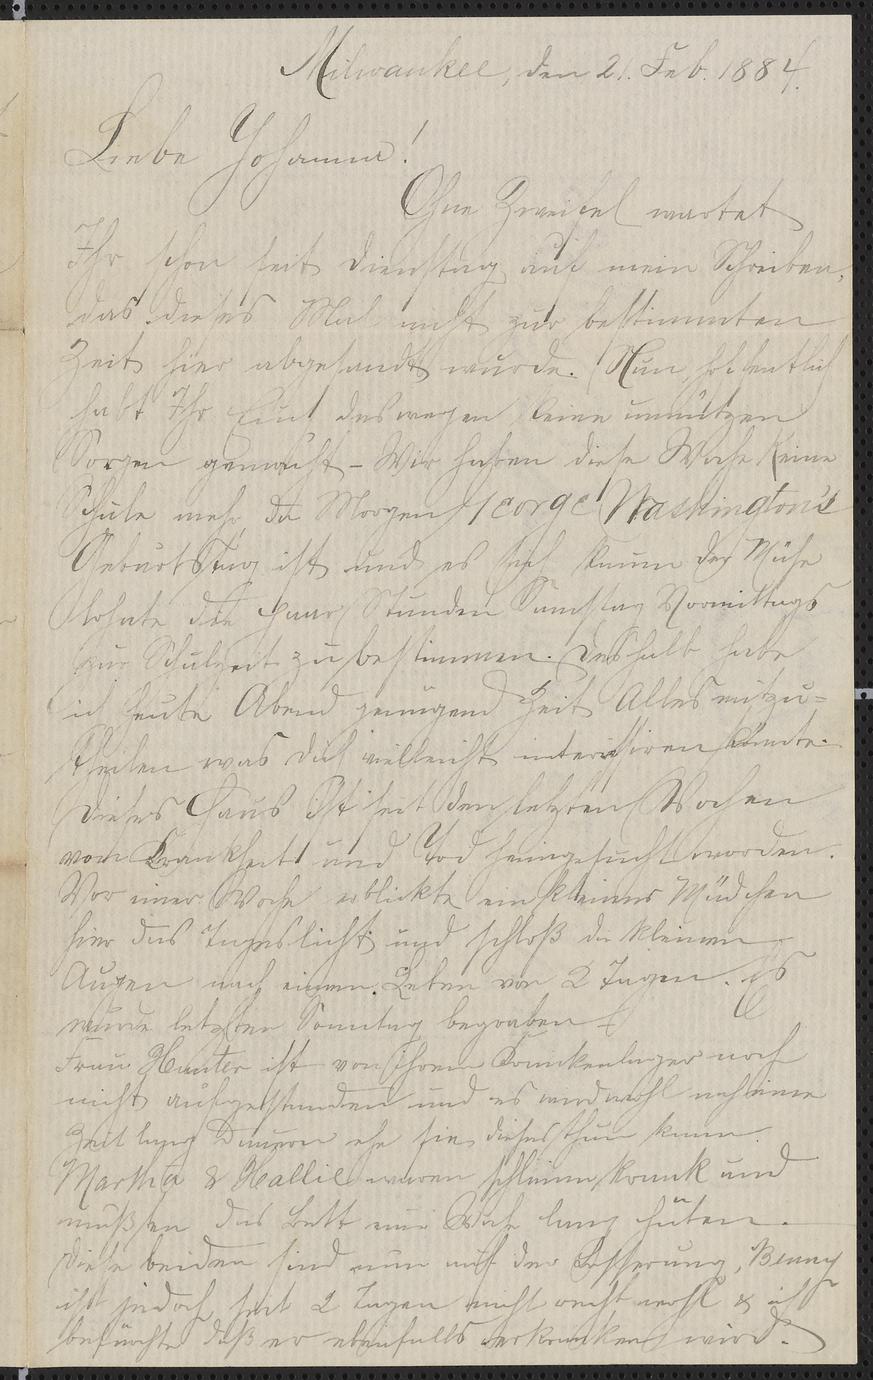 Milwaukee, den 21. Feb. 1884.
Liebe Johanna!
Ohne Zweifel wartet
Ihr schon seit Dienstag auf mein Schreiben,
das dieses Mal nicht zur bestimmten
Zeit hier abgesandt wurde. Nun, hoffentlich
habt Ihr Euch deswegen keine unnützen
Sorgen gemacht – Wir haben diese Woche keine
Schule mehr, da Morgen George Washington's
Geburtstag ist und es sich kaum der Mühe
lohnte die paar Stunden Samstag Vormittags
zur Schulzeit zu bestimmen. Deshalb habe
ich heute Abend genügend Zeit Alles mitzu=
theilen was dich vielleicht interessiren könnte.
Dieses Haus ist seit den letzten Wochen
von Krankheit und Tod heimgesucht worden.
Vor einer Woche erblickte ein kleines Mädchen
hier das Tageslicht und schloß die kleinen
Augen nach einem Leben von 2 Tagen. Es
wurde letzten Sonntag begraben –
Frau Hunter ist von ihrem Krankenlager noch
nicht aufgestanden und es wird wohl noch eine
Zeit lang dauern ehe sie dieses thun kann.
Martha & Hallie waren schlimm krank und
mußten das Bett eine Woche lang hüten.
Diese beiden sind nun auf der Besserung, Benny
ist jedoch seit 2 Tagen nicht recht wohl & ich
befürchte daß er ebenfalls erkranken wird.